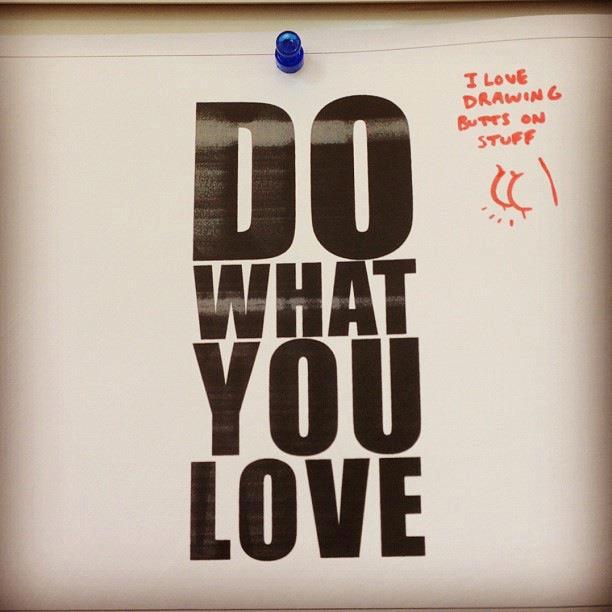 DO
WHAT
YOU
LOVE
I LOVE
DRAWING
BUTTS ON
STUFF